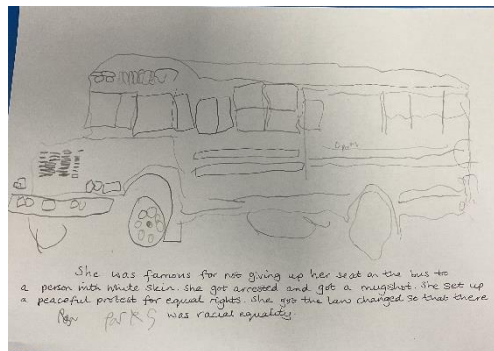 She was famous for not giving up her seat on the bus to
a person with white skin. She got arrested and got a mugshot. She set up
a peaceful protest for equal rights. She got the law changed so that there
was racial equality.
ParkS